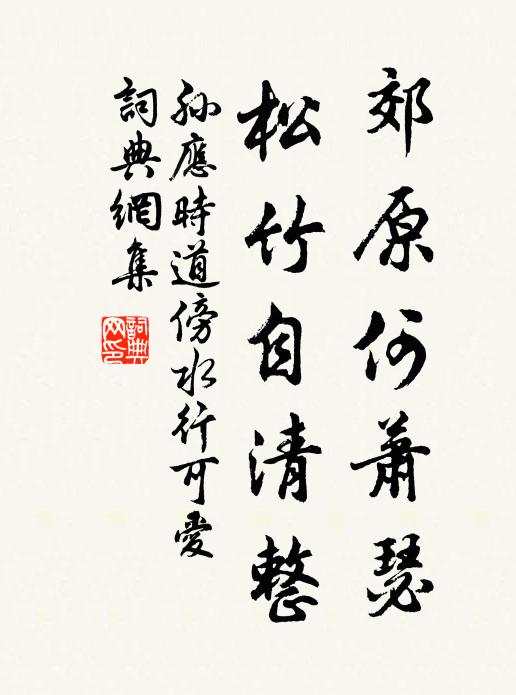 郊原何蕭瑟
松竹自清整
孫應時道傍水行可愛
詞典網集
詞典網印